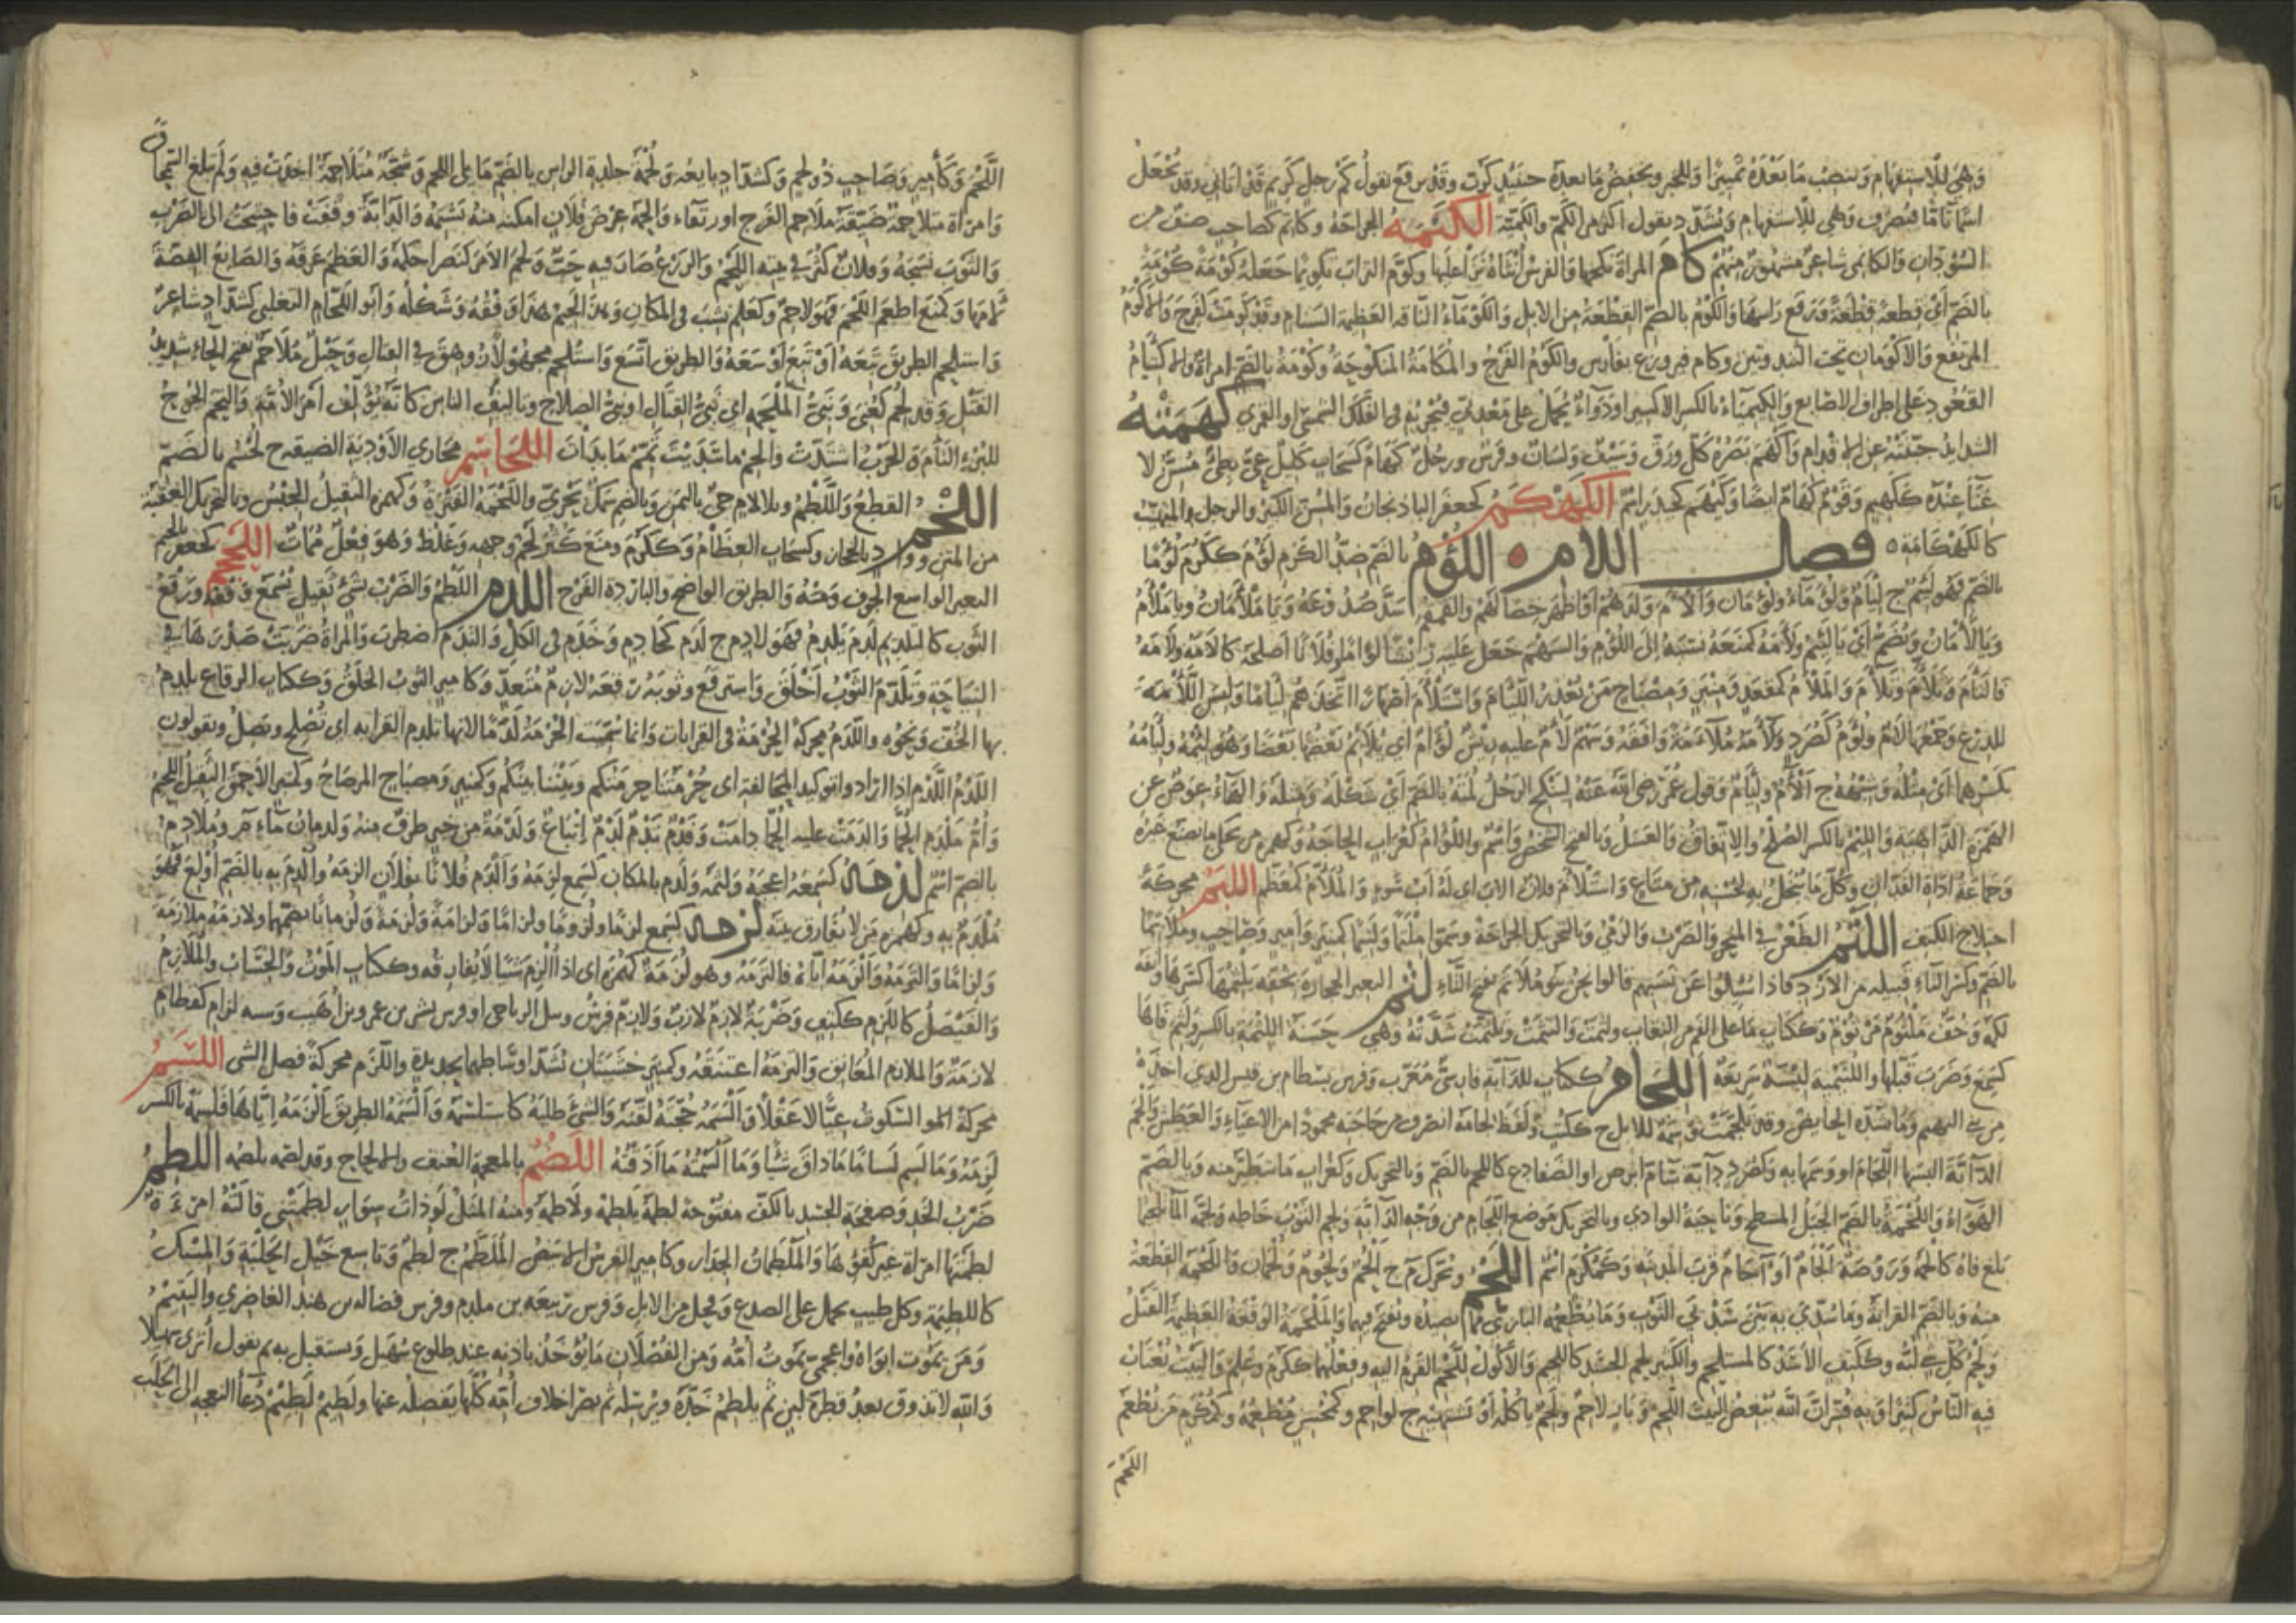 وَهِيَ لِلاستِفهام وينصِبُ مَا بَعْدَهُ تمْييزًا وللخبر ويخفض ما بعده حينئذٍ كرُبَّ وقد يرفع تقول كم رجل كريم قد أتاني وقد تُجْعَلُ
اسمًا تامًّا فتصرف وتشدد تقول أكثر من الكم والكمية الكلثمة الجراحة وكاتم كصاحب صنف من
السودان والكانمي شاعر مشهور منهم كام المرأة نكحها والفرس أنثاه نزا عليها وكوم التراب تكويمًا جعله كومة كومة
بالضم أي قطعة قطعة ورفع رأسها والكوم بالضم القطعة من الابل والكوماء الناقة العظيمة السنام وقد كومت كفرح والأكوم
المرتفع والأكومان تحت الثندوتين وكام فيروز ع بفارس والكوم الفرج والمكامة المنكوحة وكومة بالضم امرأة والاكتيام
القعود على أطراف الأصابع والكيمياء بالكسر الاكسير أو دواء يحمل على معدني فيجريه في الفلك الشمسي أو القمري كهمته
الشدايد جبنته عن الاقدام وأكهم بصره كل ورق وسيف ولسان وفرس ورجل كهام كسحاب كليل عي بطيء مسن لا
غناء عنده ككهيم وقوم كهام أيضا وكيهم كحيدر اسم الكهكم كجعفر الباذنجان والمسن الكبير والرجل المتهيب
كالكهكامة فصل اللام اللؤم بالضم ضد الكرم لؤم ككرم لؤما
بالضم فهو لئيم ج لئام ولؤماء ولؤمان وألأم ولدهم أو أظهر خصالهم والقمقم سد صدوعه ويا ملأمان ويا ملأم
ويا لأمان ويضم أي يا لئيم ولأمه كمنعه نسبه إلى اللؤم والسهم جعل عليه ريشا لؤاما وفلانا أصلحه كالأمه ولأمه
فالتأم وتلأم وتلاءم والملأم كمقعد ومنبر ومصباح من يعذر اللئام واستلأم أصهارا اتخذهم لئاما ولبس اللأمة
للدرع وجمعها لأم ولؤم كصرد ولاءمه ملاءمة وافقه وسهم لأم عليه ريش لؤام أي يلائم بعضها بعضا وهو لئمه ولئامه
بكسرهما أي مثله وشبهه ج ألآم ولئام وقول عمر رضي الله عنه لينكح الرجل لمته بالضم أي شكله ومثله والهاء عوض عن
الهمزة الذاهبة واللئم بالكسر الصلح والاتفاق والعسل وبالفتح الشخص واسم واللؤام كغراب الحاجة وكهمزه من يحكي ما يصنع غيره
وجماعة أداة الفدان وكل ما يبخل به لحسنه من متاع واستلأم فلان الأب أي له أب سوء والملأم كمعظم اللبم محركة
اختلاج الكتف اللتم الطعن في المنحر والضرب والرمي وبالتحريك الجراحة وسموا ملتما ولتيما كمنبر وأمير وصاحب وملاتما
بالضم وكسر التاء قبيلة من الأزد فإذا سئلوا عن نسبهم قالوا نحن بنو ملاتم بفتح التاء لثم البعير الحجارة بخفه يلثمها كسرها وأنفه
لكمه وخف ملثوم مرثوم وككتاب ما على الفم من النقاب ولثمت والتثمت وتلثمت شدته وهي حسنة اللثمة بالكسر ولثم فاها
كسمع وضرب قبلها واللثيمية لبسة سريعة اللجام ككتاب للدابة فارسي معرب وفرس بسطام بن قيس الذي أخذه
من بني الهيم وما تشده الحايض وقد تلجمت وسمة للابل ج ككتب ولفظ لجامه انصرف من حاجته مجهودا من الاعياء والعطش وألجم
الدآبة ألبسها اللجام أو وسمها به وكصرد دابة سام أبرص أو الضفادع كاللجم بالضم وبالتحريك وكغراب ما يتطير منه وبالضم
الهواء واللجمة بالضم الجبل المسطح وناحية الوادي وبالتحريك موضع اللجام من وجه الدآبة ولجم الثوب خاطه ولجمه الماء تلجيما
بلغ فاه كألجمه وروضة ألجام أو آجام قرب المدينة وكمكرم اسم اللحم ويحرك م ج ألحم ولحوم ولحمان واللحمة القطعة
منه وبالضم القرابة وما سدي به بين سدي الثوب وما يطعمه البازي مما يصيده ويفتح فيهما والملحمة الوقعة العظيمة القتل
ولحم كل شيء لبه وككتف الأسد كالمستلحم والكثير لحم الجسد كاللحيم والأكول للحم القرم اليه وفعلهما ككرم وعلم والبيت يغتاب
فيه الناس كثيرا وبه فسر ان الله يبغض البيت اللحم وباز لاحم ولحم يأكله أو يشتهيه ج لواحم وكمحسن مطعمه وكمكرم من يطعم
اللحم
اللَّحْم وكأمير وصاحب ذو لحم وكشداد بايعه ولحمة جلدة الراس بالضم ما يلي اللحم وشجة متلاحمة أخذت فيه ولم تبلغ السمحاق
وامرأة متلاحمة ضيقة ملاحم الفرج أو رتقاء وألحمه عرض فلان أمكنه منه يشتمه والدابة وقفت فاحتيجت إلى الضرب
والثوب نسجه وفلان كثر في بيته اللحم والزرع صار فيه حب ولحم الأمر كنصر أحكمه والعظم عرقه والصانع الفضة
لأمها وكمنع أطعم اللحم فهو لاحم وكعلم نشب في المكان وهذا لحيم هذا وفقه وشكله وأبو اللحام التغلبي كشداد شاعر
واستلحم الطريق تبعه أو تبع أوسعه والطريق اتسع واستلحم مجهولا روهق في القتال وحبل ملاحم بفتح الحاء شديد
الفتل وقد لحم كعني ونبي الملحمة أي نبي القتال أو نبي الصلاح وتأليف الناس كأنه يؤلف أمر الأمة والتحم الجرح
للبرء التأم والحرب اشتدت وألحم ما أسديت تمم ما بدأت اللحاسم مجاري الأودية الضيقة ج لحسم بالضم
اللخم القطع واللطم وبلا لام حي باليمن وبالضم سمك بحري واللخمة الفترة وكهمزه الثقيل الجبس وبالتحريك العقبة
من المتن وواد بالحجاز وكسحاب العظام وككرم ومنع كثر لحم وجهه وغلظ وهو فعل ممات اللخجم كجعفر بالجيم
البعير الواسع الجوف وحشه والطريق الواضح والباردة الفرج اللدم اللطم والضرب بشيء ثقيل يسمع وقعه ورقع
الثوب كالتلديم لدم يلدم فهو لادم ج لدم كخادم وخدم في الكل والتدم اضطرب والمرأة ضربت صدرها في
النياحة وتلدم الثوب أخلق واسترقع وثوبه رقعه لازم متعد وكأمير الثوب الخلق وككتاب الرقاع يلدم
بها الخف ونحوه واللدم محركة الحرمة في القرابات وانما سميت الحرمة لدما لأنها تلدم القرابه أي تصلح وتصل ويقولون
اللدم اللدم اذا ارادوا توكيد المحالفة أي حرمتنا حرمتكم وبيتنا بيتكم وكمنبر ومصباح المرضاح وكمنبر الأحمق الثقيل اللحيم
وأم ملدم الحمى وألدمت عليه الحمى دامت وفدم ثدم لدم اتباع ولدمة من خبر طرف منه ولدمان ماء م وملادم
بالضم اسم لذمه كسمعه أعجبه ولثمه ولذم بالمكان كسمع لزمه وألذم فلانا بفلان ألزمه وألذم به بالضم أولع فهو
ملذم به وكهمزه من لا يفارق بيته لزمه كسمع لزما ولزوما ولزاما ولزامة ولزمة ولزمانا بضمهما ولازمه ملازمة
ولزاما والتزمه وألزمه اياه فالتزمه وهو لزمة كهمزة أي اذا لزم شيئا لا يفارقه وككتاب الموت والحساب والملازم
والفيصل كاللزم ككتف وضربة لازم لازب ولازم فرس وثيل الرياحي أو فرس بشر بن عمرو بن أهيب وسبه لزام كقطام
لازمة والملازم المعانق والتزمه اعتنقه وكمنبر خشبتان تشد أوساطهما بحديدة واللزم محركة فصل الشيء اللسم
محركة الموا السكوت عيا لا عقلا وألسمه حجته لقنه والشيء طلبه كاستلسمه وألسمه الطريق ألزمه إياها فلسمه بالكسر
لزمه وما لسم لساما ما ذاق شيئا وما ألسمته ما أذقته اللضم بالمعجمة العنف والالحاح وقد لضمه يلضمه اللطم
ضرب الخد وصفحة الجسد بالكف مفتوحة لطمه يلطمه ولاطمه ومنه المثل لو ذات سوار لطمتني قالته امرءة
لطمتها امرأة غير كفؤ لها والملطمان الخدان وكأمير الفرس الابيض الملطم ج لطم وتاسع خيل الحلبة والمسك
كاللطيمة وكل طيب يحمل على الصدع وفحل من الابل وفرس ربيعة بن ملدم وفرس فضاله بن هند الغاضري واليتيم
ومن يموت أبواه والعجي يموت أمه ومن الفصلان ما يؤخذ باذنه عند طلوع سهيل ويستقبل به ثم يقول أترى سهيلا
والله لا تذوق بعد قطرة لبن ثم يلطم خده ويرسله ثم يصر أخلاف أمه كلها يفصله عنها ولطيم لطيم دعاء النعجة الى الحلب